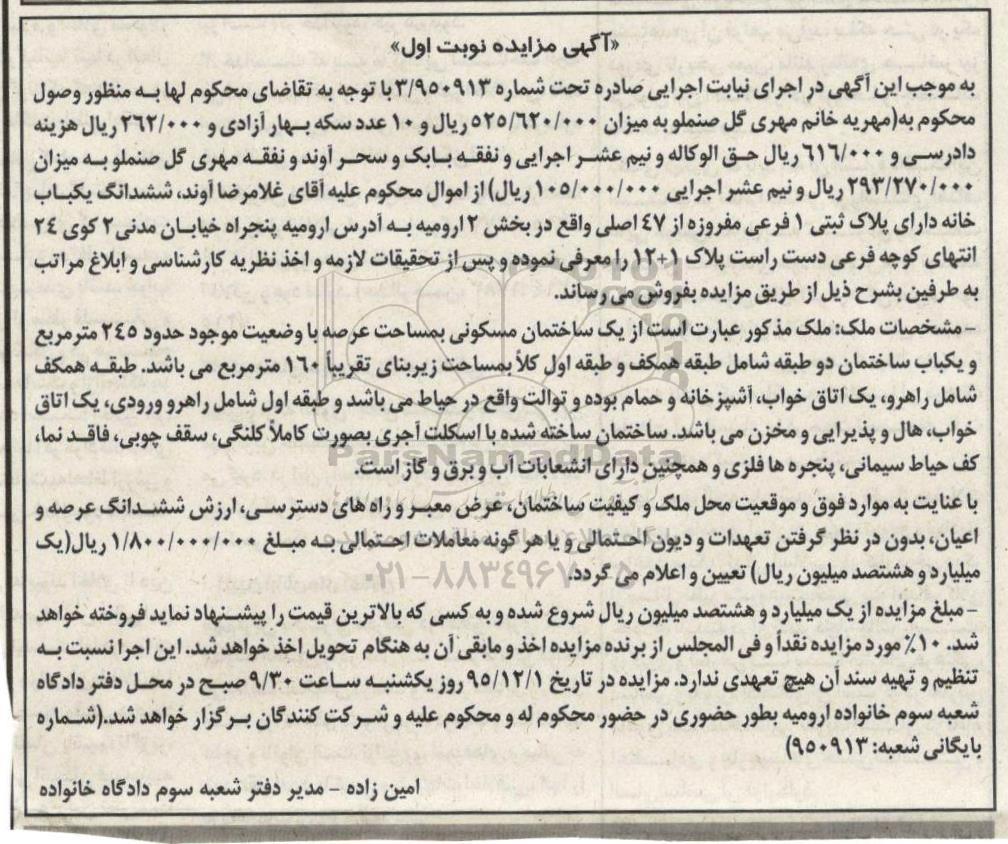 «آگهی مزایده نوبت اول»
به موجب این آگهی در اجرای نیابت اجرایی صادره تحت شماره ۳/۹۵۰۹۱۳ با توجه به تقاضای محکوم لها به منظور وصول
محکوم به(مهریه خانم مهری گل صنملو به میزان ۵۲۵/۶۲۰/۰۰۰ ریال و ۱۰ عدد سکه بهار آزادی و ۲۶۲/۰۰۰ ریال هزینه
دادرسی و ۶۱۶/۰۰۰ ریال حق الوکاله و نیم عشر اجرایی و نفقه بابک و سحر آوند و نفقه مهری گل صنملو به میزان
۲۹۳/۲۷۰/۰۰۰ ریال و نیم عشر اجرایی ۱۰۵/۰۰۰/۰۰۰ ریال) از اموال محکوم علیه آقای غلامرضا آوند، ششدانگ یکباب
خانه دارای پلاک ثبتی ۱ فرعی مفروزه از ۴۷ اصلی واقع در بخش ۲ ارومیه به آدرس ارومیه پنجراه خیابان مدنی۲ کوی ۲۴
انتهای کوچه فرعی دست راست پلاک ۱+۱۲ را معرفی نموده و پس از تحقیقات لازمه و اخذ نظریه کارشناسی و ابلاغ مراتب
به طرفین بشرح ذیل از طریق مزایده بفروش می رساند.
- مشخصات ملک: ملک مذکور عبارت است از یک ساختمان مسکونی بمساحت عرصه با وضعیت موجود حدود ۲۴۵ مترمربع
و یکباب ساختمان دو طبقه شامل طبقه همکف و طبقه اول کلاً بمساحت زیربنای تقریباً ۱۶۰ مترمربع می باشد. طبقه همکف
شامل راهرو، یک اتاق خواب، آشپزخانه و حمام بوده و توالت واقع در حیاط می باشد و طبقه اول شامل راهرو ورودی، یک اتاق
خواب، هال و پذیرایی و مخزن می باشد. ساختمان ساخته شده با اسکلت آجری بصورت کاملاً کلنگی، سقف چوبی، فاقد نما،
کف حیاط سیمانی، پنجره ها فلزی و همچنین دارای انشعابات آب و برق و گاز است.
با عنایت به موارد فوق و موقعیت محل ملک و کیفیت ساختمان، عرض معبر و راه های دسترسی، ارزش ششدانگ عرصه و
اعیان، بدون در نظر گرفتن تعهدات و دیون احتمالی و یا هر گونه معاملات احتمالی به مبلغ ۱/۸۰۰/۰۰۰/۰۰۰ ریال(یک
میلیارد و هشتصد میلیون ریال) تعیین و اعلام می گردد.
- مبلغ مزایده از یک میلیارد و هشتصد میلیون ریال شروع شده و به کسی که بالاترین قیمت را پیشنهاد نماید فروخته خواهد
شد. ۱۰٪ مورد مزایده نقداً و فی المجلس از برنده مزایده اخذ و مابقی آن به هنگام تحویل اخذ خواهد شد. این اجرا نسبت به
تنظیم و تهیه سند آن هیچ تعهدی ندارد. مزایده در تاریخ ۹۵/۱۲/۱ روز یکشنبه ساعت ۹/۳۰ صبح در محل دفتر دادگاه
شعبه سوم خانواده ارومیه بطور حضوری در حضور محکوم له و محکوم علیه و شرکت کنندگان برگزار خواهد شد.(شماره
بایگانی شعبه: ۹۵۰۹۱۳)
امین زاده - مدیر دفتر شعبه سوم دادگاه خانواده
ParsNamadData
۰۲۱-۸۸۳۴۹۶۷۰-۵